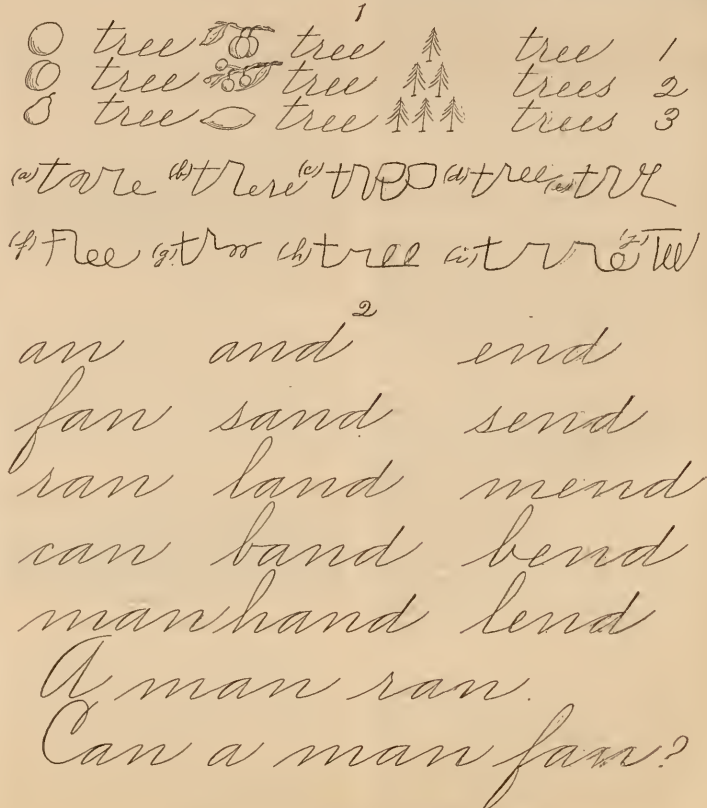 1
tree tree tree 1
tree tree trees 2
tree tree trees 3
(a) (b) (c) (d) tree (e)
(f) (g) (h) tree (i) (j)
2
an and end
fan sand send
ran land mend
can band bend
man hand lend
A man ran.
Can a man fan?